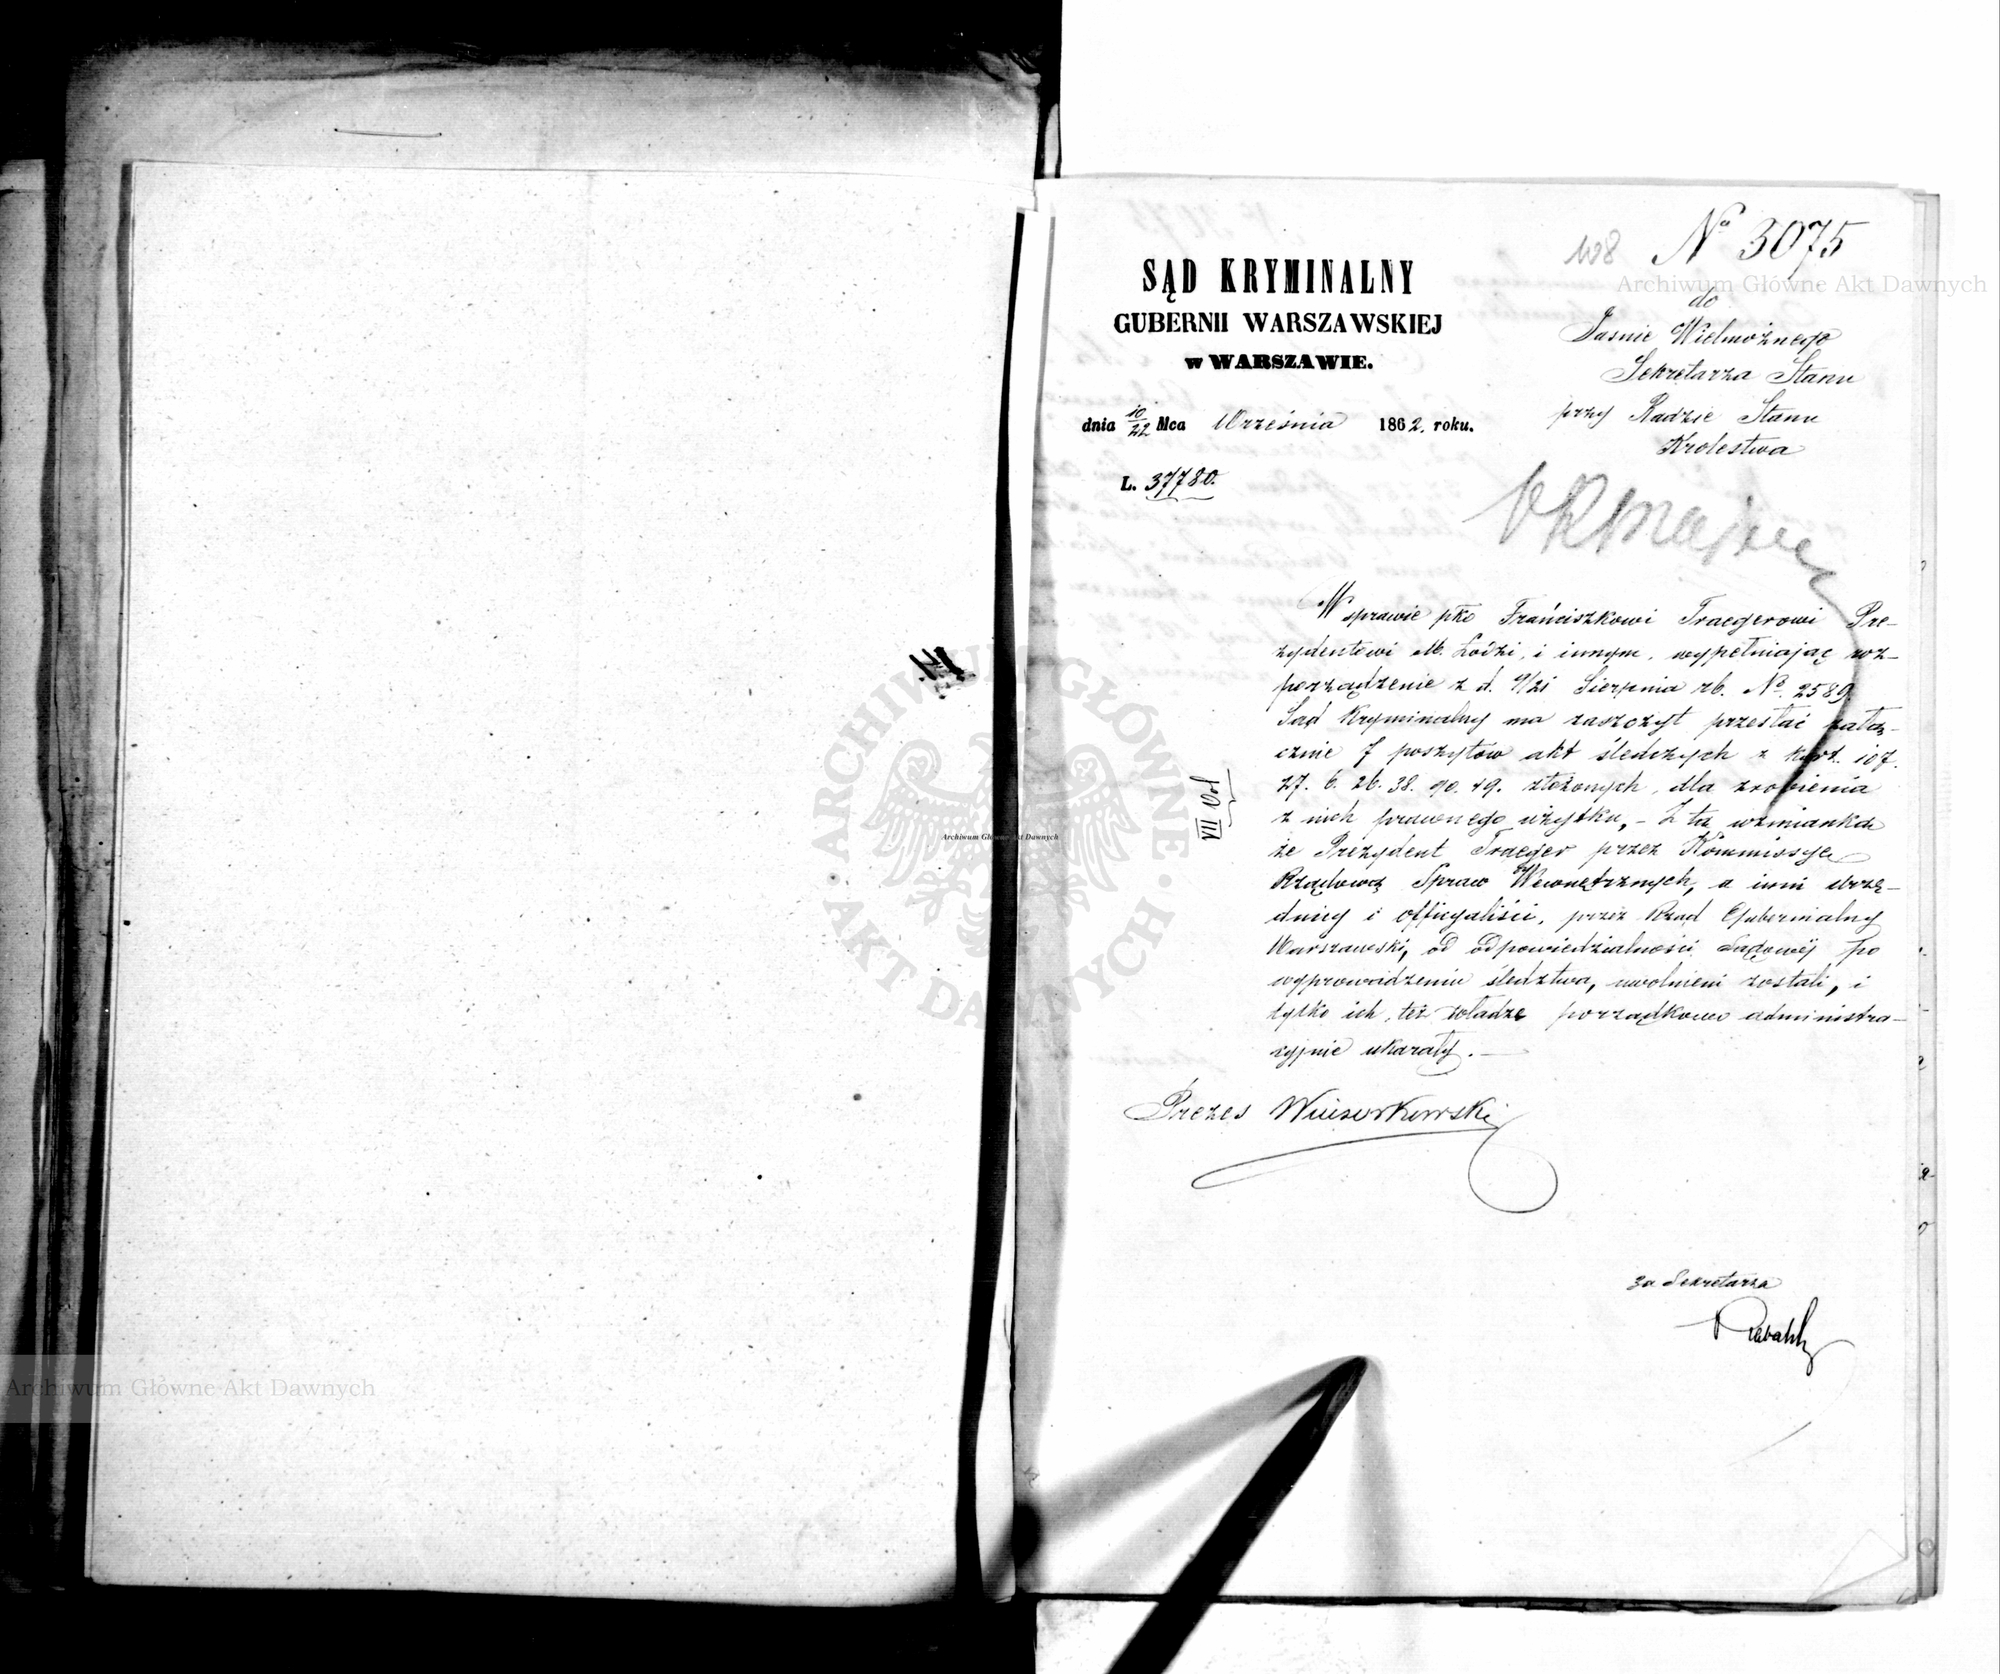 108 Nº 3075
SĄD KRYMINALNY
GUBERNII WARSZAWSKIEJ
w WARSZAWIE.
dnia 10/22 Mca Września 1862. roku.
L. 37780.
do
Jaśnie Wielmożnego
Sekretarza Stanu
przy Radzie Stanu
Królestwa
W sprawie pko Franciszkowi Traegerowi Pre-
zydentowi M. Łodzi, i innym, wypełniając roz-
porządzenie z d. 9/21 Sierpnia rb. Nº 2589
Sąd Kryminalny ma zaszczyt przesłać załą-
cznie 7 poszytów akt śledczych z kart. 107.
27. 6. 26. 38. 90. 49. złożonych, dla zrobienia
z nich prawnego użytku, - Z tą wzmianką
że Prezydent Traeger przez Kommissyę
Rządową Spraw Wewnętrznych, a inni urzę-
dnicy i officyaliści, przez Rząd Gubernialny
Warszawski, od odpowiedzialności Sądowéj po
wyprowadzeniu śledztwa, uwolnieni zostali, i
tylko ich, też władze porządkowo administra-
cyjnie ukarały. -
VII Vol
Prezes Wieczorkowski
za Sekretarza
Archiwum Główne Akt Dawnych
Archiwum Główne Akt Dawnych
Archiwum Główne Akt Dawnych
ARCHIWUM GŁÓWNE · AKT DAWNYCH ·